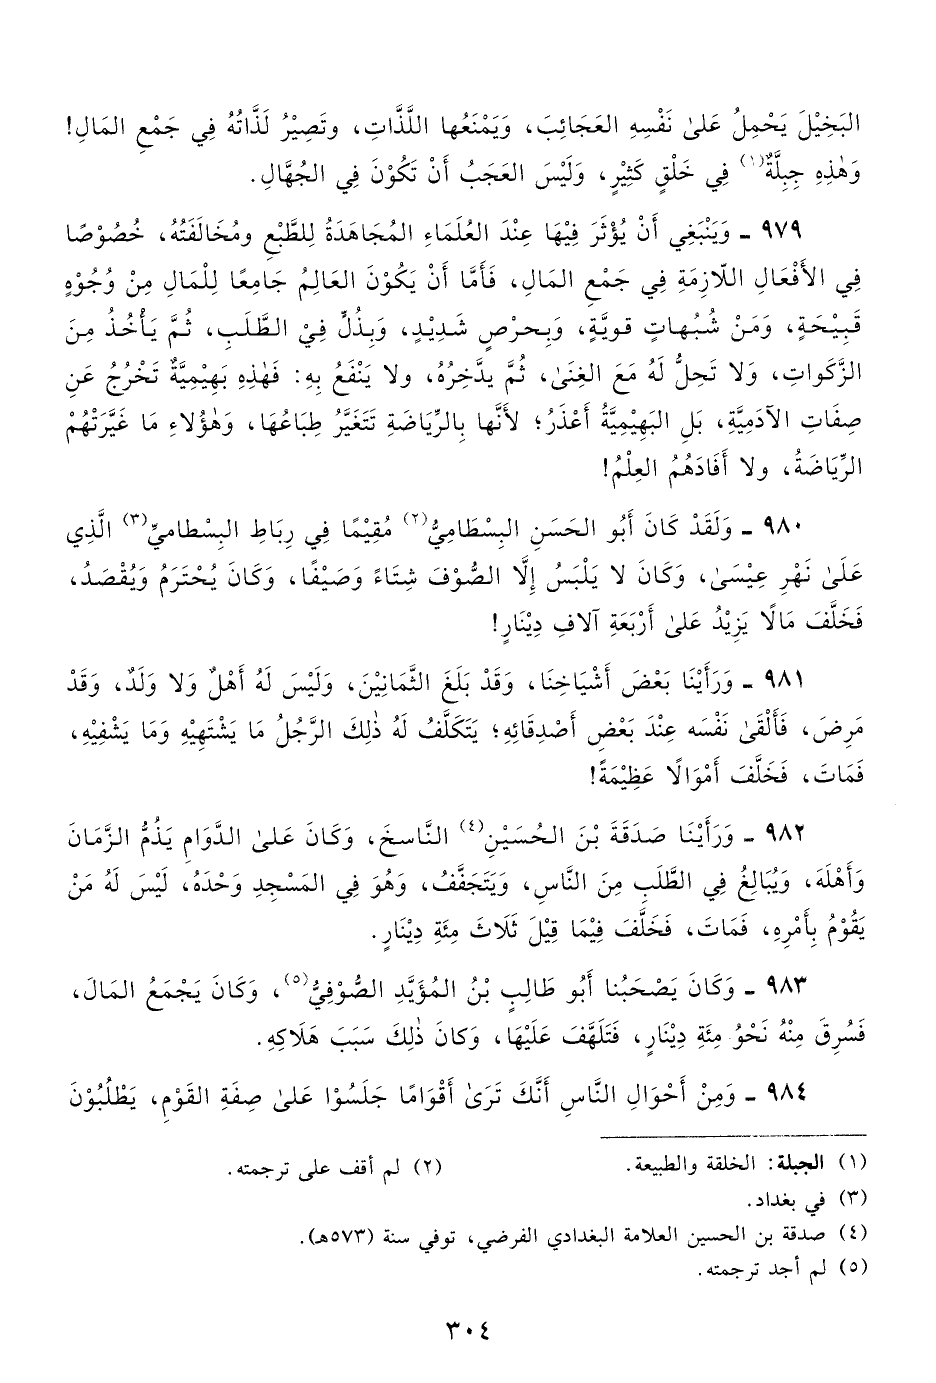 البَخِيْلَ يَحْمِلُ عَلىٰ نَفْسِهِ العَجَائِبَ، وَيَمْنَعُها اللَّذَّاتِ، وتَصِيْرُ لَذَّاتُهُ فِي جَمْعِ المَالِ!
وَهٰذِهِ جِبِلَّةٌ(١) فِي خَلْقٍ كَثِيْرٍ، وَلَيْسَ العَجَبُ أَنْ تَكُوْنَ فِي الجُهَّالِ.
٩٧٩ ـ وَيَنْبَغِي أَنْ يُؤْثَرَ فِيْهَا عِنْدَ العُلَمَاءِ المُجَاهَدَةُ لِلطَّبْعِ ومُخَالَفَتُهُ، خُصُوْصًا
فِي الأَفْعَالِ اللّازِمَةِ فِي جَمْعِ المَالِ، فَأَمَّا أَنْ يَكُوْنَ العَالِمُ جَامِعًا لِلْمَالِ مِنْ وُجُوْهٍ
قَبِيْحَةٍ، وَمَنْ شُبُهاتٍ قويَّةٍ، وَبِحرْصٍ شَدِيْدٍ، وَبِذُلٍّ فِيْ الطَّلَبِ، ثُمَّ يَأْخُذُ مِنَ
الزَّكَواتِ، وَلا تَحِلُّ لَهُ مَعَ الغِنَىٰ، ثُمَّ يدَّخِرُهُ، ولا يَنْفَعُ بِهِ: فَهٰذِهِ بَهِيْمِيَّةٌ تَخْرُجُ عَنِ
صِفَاتِ الآدَمِيَّةِ، بَلِ البَهِيْمِيَّةُ أَعْذَرُ؛ لأَنَّها بِالرِّيَاضَةِ تَتَغَيَّرُ طِبَاعُهَا، وَهٰؤُلاءِ مَا غَيَّرَتْهُمْ
الرِّيَاضَةُ، ولا أَفَادَهُمُ العِلْمُ!
٩٨٠ ـ وَلَقَدْ كَانَ أَبُو الحَسَنِ البِسْطَامِيُّ(٢) مُقِيْمًا فِي رِبَاطِ البِسْطاميِّ(٣) الَّذِي
عَلَىٰ نَهْرِ عِيْسَىٰ، وَكَانَ لا يَلْبَسُ إِلَّا الصُّوْفَ شِتَاءً وَصَيْفًا، وَكَانَ يُحْتَرَمُ وَيُقْصَدُ،
فَخَلَّفَ مَالًا يَزِيْدُ عَلىٰ أَرْبَعَةِ آلافِ دِيْنَارٍ!
٩٨١ ـ وَرَأَيْنَا بَعْضَ أَشْيَاخِنَا، وَقَدْ بَلَغَ الثَّمَانِيْنَ، وَلَيْسَ لَهُ أَهْلٌ وَلا وَلَدٌ، وَقَدْ
مَرِضَ، فَأَلْقَىٰ نَفْسَه عِنْدَ بَعْضِ أَصْدِقَائِهِ؛ يَتَكَلَّفُ لَهُ ذٰلِكَ الرَّجُلُ مَا يَشْتَهِيْهِ وَمَا يَشْفِيْهِ،
فَمَاتَ، فَخَلَّفَ أَمْوَالًا عَظِيْمَةً!
٩٨٢ ـ وَرَأَيْنَا صَدَقَةَ بْنَ الحُسَيْنِ(٤) النَّاسخَ، وَكَانَ عَلىٰ الدَّوَامِ يَذُمُّ الزَّمَانَ
وَأَهْلَهَ، وَيُبَالِغُ فِي الطَّلَبِ مِنَ النَّاسِ، ويَتَجَفَّفُ، وَهُوَ فِي المَسْجِدِ وَحْدَهُ، لَيْسَ لَهُ مَنْ
يَقُوْمُ بِأَمْرِهِ، فَمَاتَ، فَخَلَّفَ فِيْمَا قِيْلَ ثَلَاثَ مِئَةِ دِيْنَارٍ.
٩٨٣ ـ وَكَانَ يَصْحَبُنا أَبُو طَالِبٍ بْنُ المُؤَيَّدِ الصُّوْفِيُّ(٥)، وَكَانَ يَجْمَعُ المَالَ،
فَسُرِقَ مِنْهُ نَحْوُ مِئَةِ دِيْنَارٍ، فَتَلَهَّفَ عَلَيْهَا، وَكانَ ذٰلِكَ سَبَبَ هَلَاكِهِ.
٩٨٤ ـ وَمِنْ أَحْوَالِ النَّاسِ أَنَّكَ تَرَىٰ أَقْوَامًا جَلَسُوْا عَلىٰ صِفَةِ القَوْمِ، يَطْلُبُوْنَ
(١) الجبلة: الخلقة والطبيعة. (٢) لم أقف على ترجمته.
(٣) في بغداد.
(٤) صدقة بن الحسين العلامة البغدادي الفرضي، توفي سنة (٥٧٣هـ).
(٥) لم أجد ترجمته.
٣٠٤